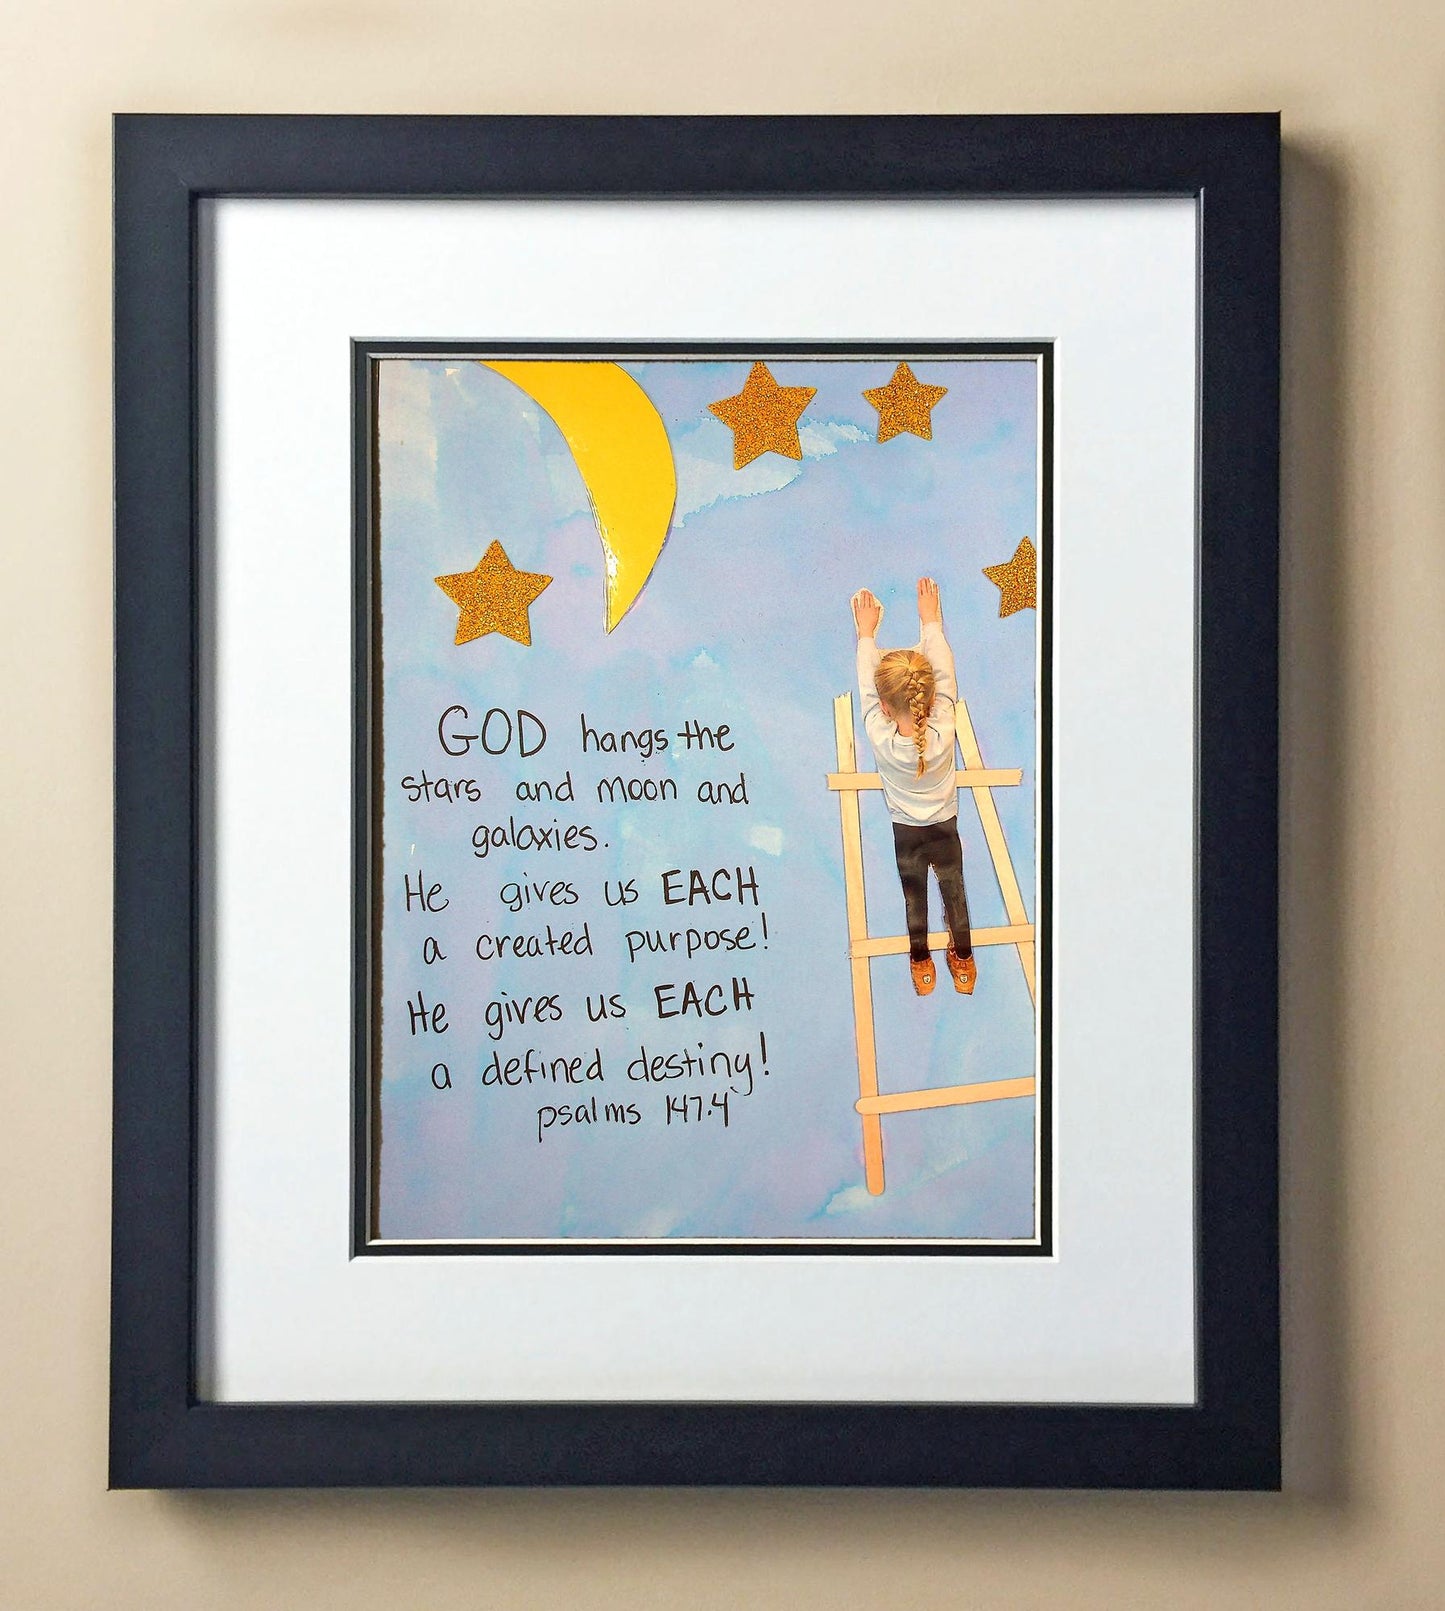 GOD hangs the
stars and moon and
galaxies.
He gives us EACH
a created purpose!
He gives us EACH
a defined destiny!
psalms 147.4